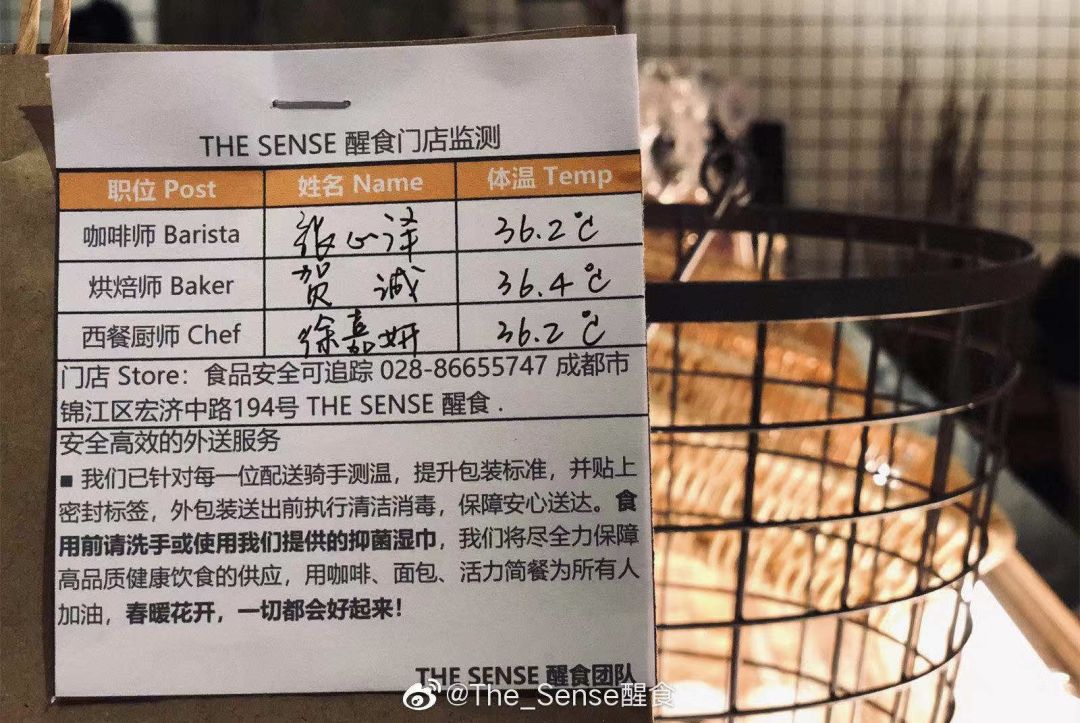 THE SENSE 醒食门店监测
职位 Post 姓名 Name 体温 Temp
咖啡师 Barista 张心译 36.2℃
烘焙师 Baker 贺诚 36.4℃
西餐厨师 Chef 徐嘉妍 36.2℃
门店 Store：食品安全可追踪 028-86655747 成都市
锦江区宏济中路194号 THE SENSE 醒食 .
安全高效的外送服务
■ 我们已针对每一位配送骑手测温，提升包装标准，并贴上
密封标签，外包装送出前执行清洁消毒，保障安心送达。食
用前请洗手或使用我们提供的抑菌湿巾，我们将尽全力保障
高品质健康饮食的供应，用咖啡、面包、活力简餐为所有人
加油，春暖花开，一切都会好起来！
THE SENSE 醒食团队
@The_Sense醒食